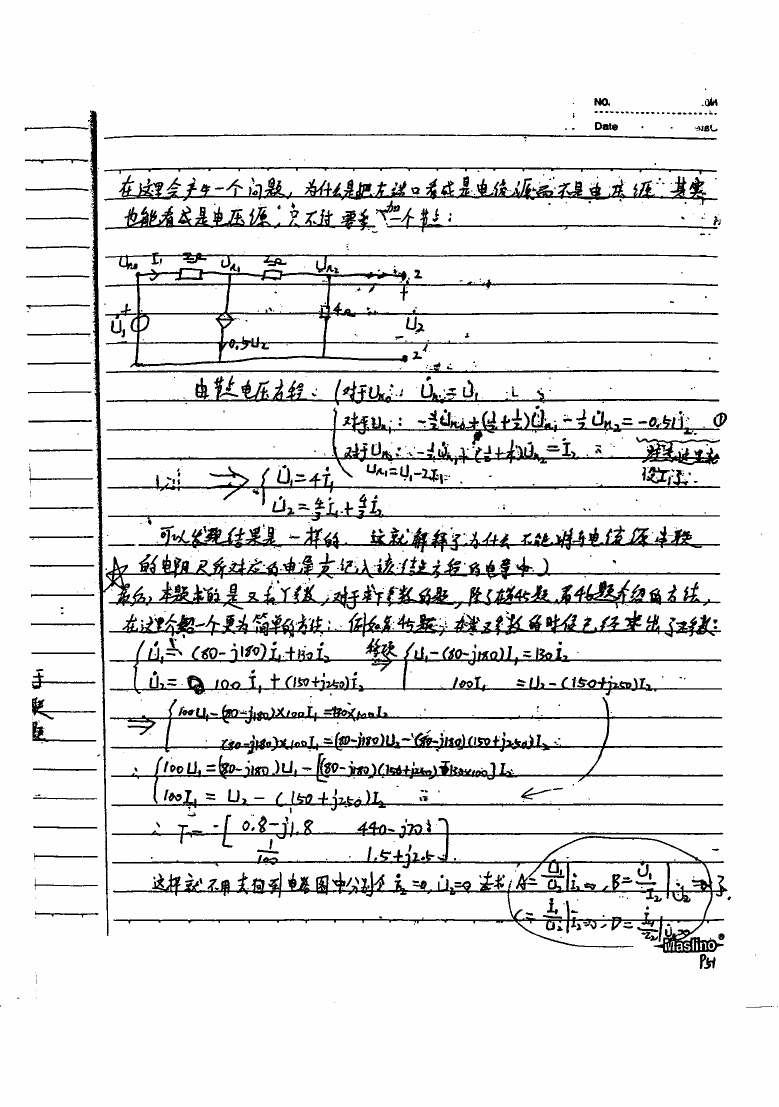 NO.
Date
在这里会产生一个问题，为什么是把左端口看成是电流源而不是电压源，其实
也能看成是电压源，只不过要多加一个节点：
Un0 I1 2Ω Un1 2Ω Un2 2
+ +
U̇1 4Ω U̇2
0.5U2
2'
由节点电压方程：{对于Un0： U̇n0=U̇1
对于Un1： -½U̇n0+(½+½)U̇n1-½U̇n2=-0.5U̇2 ①
对于Un2：-½U̇n1+(½+¼)U̇n2=İ2
Un1=U1-2I1 设I1
⇒ {U̇1=4İ1
U̇2=4/3İ1+4/3İ2
可以发现结果是一样的，这就解释了为什么不能将与电流源串联
☆的电阻R所对应的电导GR记入该结点方程的电导中）
最后，本题求的是又去T参数，对于求T参数的题，除了在第45题，第46题介绍的方法，
在这里介绍一个更为简单的方法：例如第45题，在求Z参数的时候已经求出了Z参数：
{U̇1=(80-j180)İ1+130İ2 转换⇒ {U1-(80-j180)I1=130I2
U̇2=100İ1+(150+j250)İ2 100I1 =U2-(150+j250)I2
⇒ {100U1-(80-j180)×100I1=130×100I2
(80-j180)×100I1=(80-j180)U2-(80-j180)(150+j250)I2
∴ {100U1=(80-j180)U1-[(80-j180)(150+j250)-130×100]I2
100I1=U2-(150+j250)I2
∴ T=[0.8-j1.8 440-j70
1/100 1.5+j2.5]
这样就不用去回到电路图中分别令İ2=0，U̇2=0去求A=U̇1/U̇2|İ2=0，B=U̇1/-I2|U̇2=0了
C=İ1/U̇2|İ2=0，D=İ1/-I2|U̇2=0
Maslino
P51
手
题